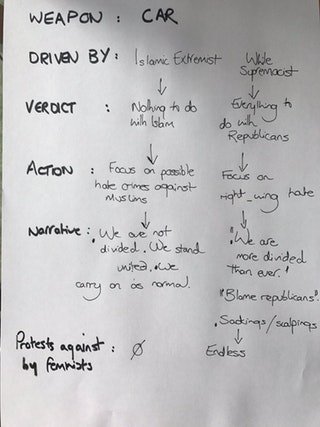 WEAPON : CAR
DRIVEN BY : Islamic Extremist White Supremacist
VERDICT : Nothing to do with Islam Everything to do with Republicans
ACTION : Focus on possible hate crimes against Muslims Focus on right_wing hate
Narrative : . We are not divided. We stand united. We carry on as normal. . "We are more divided than ever."
"Blame republicans".
. Sackings/scalpings
Protests against by feminists : Ø Endless